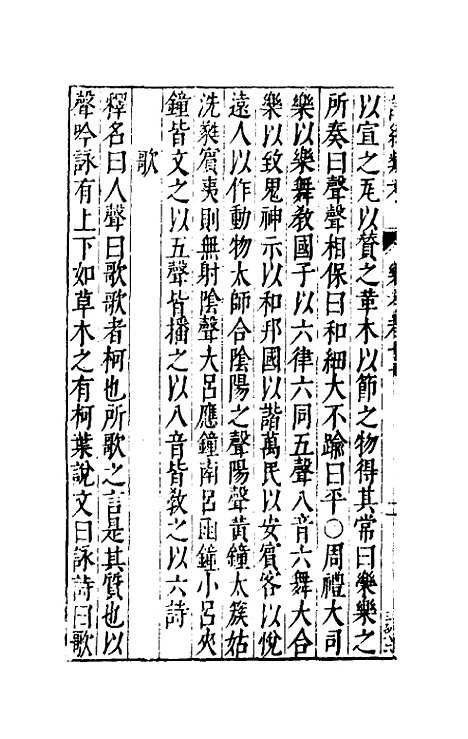 以宣之瓦以贊之革木以節之物得其常曰樂樂之
所奏曰聲聲相保曰和細大不踰曰平〇周禮大司
樂以樂舞教國子以六律六同五聲八音六舞大合
樂以致鬼神示以和邦國以諧萬民以安賓客以悅
遠人以作動物太師合陰陽之聲陽聲黃鐘太簇姑
洗蕤賓夷則無射陰聲大呂應鐘南呂函鐘小呂夾
鐘皆文之以五聲皆播之以八音皆敎之以六詩
歌
釋名曰人聲曰歌歌者柯也所歌之言是其質也以
聲吟詠有上下如草木之有柯葉說文曰詠詩曰歌